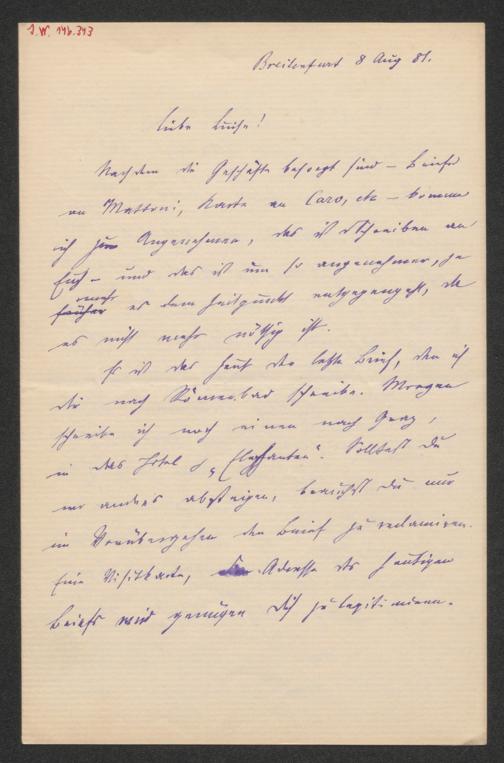 I.N. 146.343
Breitenfurt 8 Aug 81.
Liebe Luise!
Nachdem die Geschäfte besorgt sind – Briefe
an Mattoni, Karte an Caro, etc – komme
ich zum Angenehmen, das ist Schreiben an
Euch – und das ist um so angenehmer, je
mehr
früher es dem Zeitpunkt entgegengeht, da
es nicht mehr nöthig ist.
Es ist das heut der letzte Brief, den ich
Dir nach Römerbad schreibe. Morgen
schreibe ich noch einen nach Graz,
in das Hotel z „Elephanten“. Solltest Du
wo anders absteigen, brauchst Du nur
im Vorübergehen den Brief zu reclamiren.
Eine Visitkarte, Adresse des heutigen
Briefs wird genügen Dich zu legitimiren.